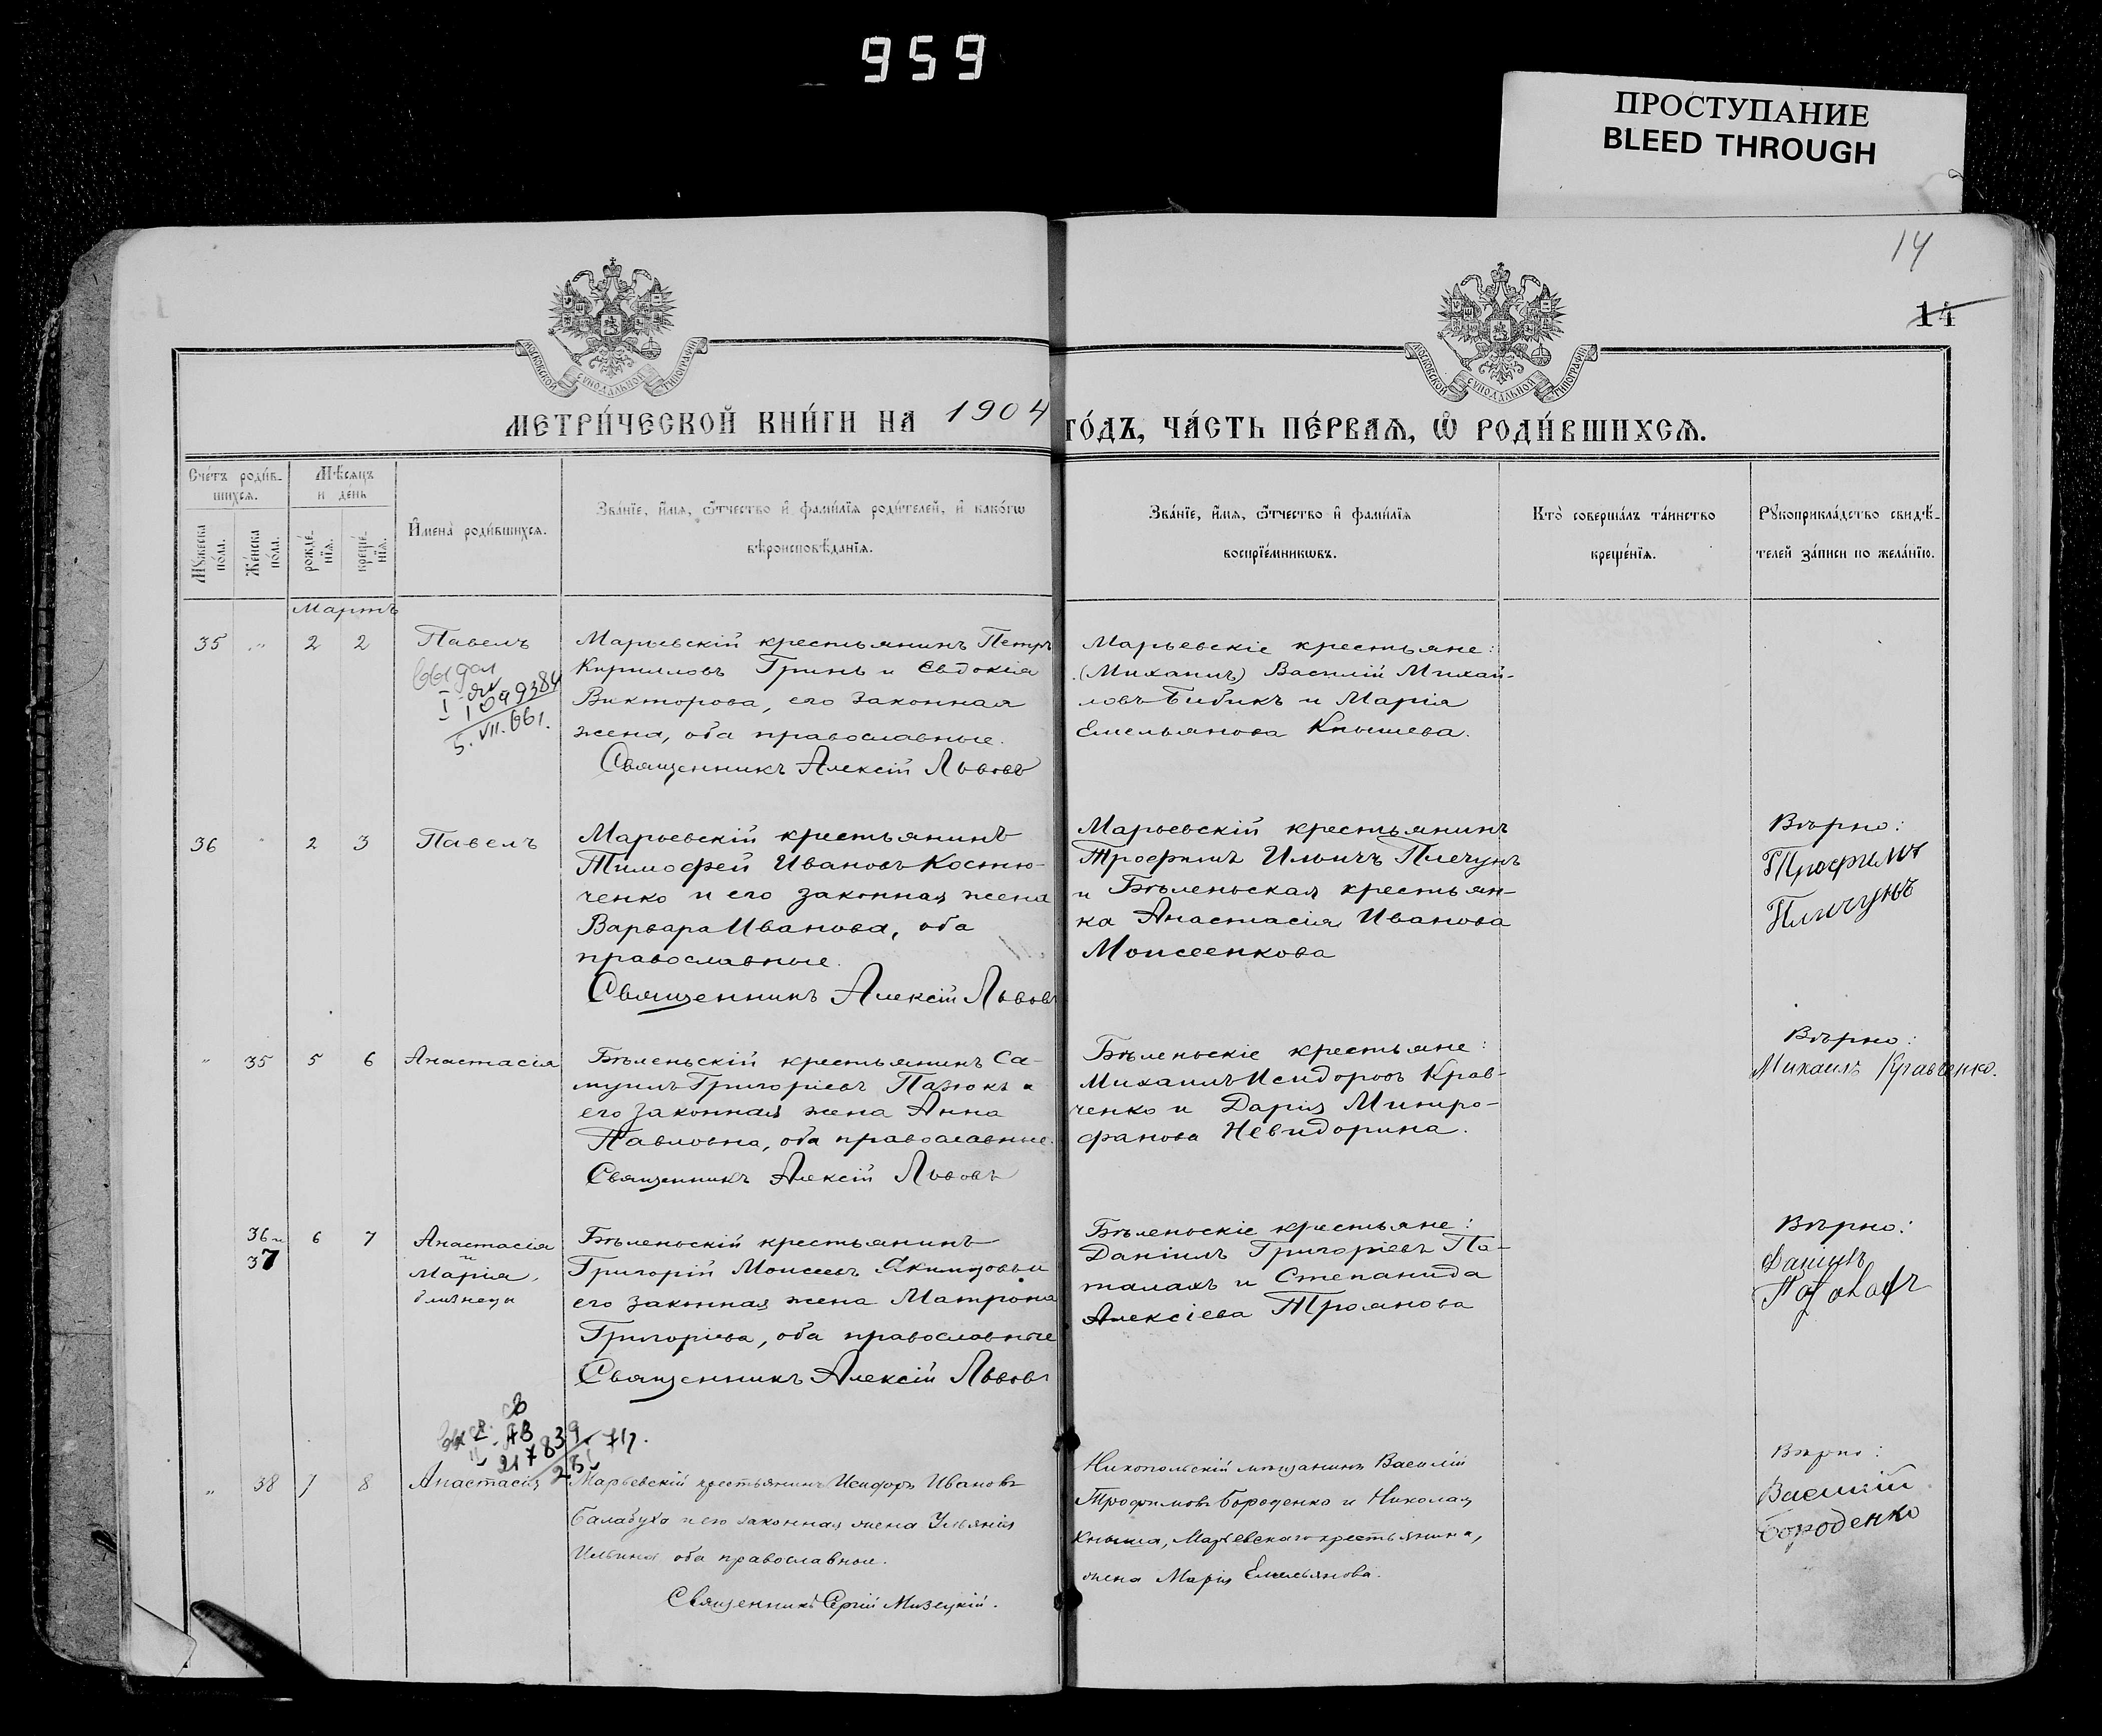 959
ПРОСТУПАНИЕ
BLEED THROUGH
14
14
МОСКОВСКОЙ СѴНОДАЛЬНОЙ ТИПОГРАФІИ
МОСКОВСКОЙ СѴНОДАЛЬНОЙ ТИПОГРАФІИ
МЕТРИ́ЧЕСКОЙ КНИ́ГИ НА 1904 ГО́ДЪ, ЧА́СТЬ ПЕ́РВАѦ, Ѿ РОДИ́ВШИХСѦ.
Сче́тъ роди́в-
шихсѧ.
Мꙋ́жеска по́ла.
Же́нска по́ла.
Мѣ́сѧцъ
и де́нь
рожде́-
нїѧ.
креще́-
нїѧ.
И҆мена̀ роди́вшихсѧ.
Зва́нїе, и҆́мѧ, ѻ҆́тчество и҆ фами́лїѧ роди́телей, и҆ како́гѡ
вѣроисповѣ́данїѧ.
Зва́нїе, и҆́мѧ, ѻ҆́тчество и҆ фами́лїѧ
воспрїе́мникѡвъ.
Кто̀ соверша́лъ та́инство
креще́нїѧ.
Рꙋкоприкла́дство свидѣ́-
телей за́писи по жела́нїю.
Мартъ
35 " 2 2 Павелъ
выдан
I 1049384
5. VII. 661.
Марьевскій крестьянинъ Петръ
Кирилловъ Гринь и Евдокія
Викторова, его законная
жена, оба православные.
Священникъ Алексій Львовъ
Марьевскіе крестьяне:
(Михаилъ) Василій Михай-
ловъ Бибикъ и Марія
Емельянова Кнышева.
36 " 2 3 Павелъ
Марьевскій крестьянинъ
Тимофей Ивановъ Костю-
ченко и его законная жена
Варвара Иванова, оба
православные.
Священникъ Алексій Львовъ
Марьевскій крестьянинъ
Трофимъ Ильичъ Плечунъ
и Бѣленьская крестьян-
ка Анастасія Иванова
Моисеенкова
Вѣрно:
Трофимъ
Плечунъ
" 35 5 6 Анастасія
Бѣленьскій крестьянинъ Са-
муилъ Григорьевъ Пазюкъ и
его законная жена Анна
Павловна, оба православные.
Священникъ Алексій Львовъ
Бѣленьскіе крестьяне:
Михаилъ Исидоровъ Крав-
ченко и Дарія Митро-
фанова Невидорина.
Вѣрно:
Михаилъ Кравченко.
36 и
37
6 7 Анастасія
и
Марія,
близнецы
Бѣленьскій крестьянинъ
Григорій Моисеевъ и
его законная жена Матрона
Григоріева, оба православные
Священникъ Алексій Львовъ
Бѣленьскіе крестьяне:
Даніилъ Григоріевъ Па-
талахъ и Степанида
Алексіева Троянова
Вѣрно:
Даніилъ
Паталахъ
217839
" 38 7 8 Анастасія
Марьевскій крестьянинъ Исидоръ Ивановъ
Балабуха и его законная жена Ульянія
Ильина оба православные.
Священникъ Сергій Мизецкій.
Никопольскій мѣщанинъ Василій
Трофимовъ Бороденко и Николая
Кныша, Марьевскаго крестьянина,
жена Марія Емельянова.
Вѣрно:
Василій
Бороденко